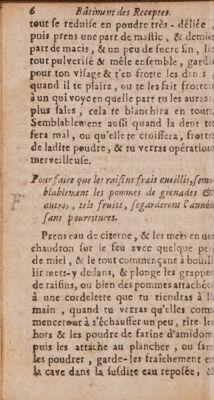 6 Bâtiment des Receptes.
tout se reduise en poudre très-déliée
puis prens une part de mastic, & demie
part de macis, & un peu de sucre fin, le
tout pulverisé & mêle ensemble, garde
pour ton visage & t'en frotte les dents
quand il te plaira, ou te les fait frotter
à un qui voye en quelle part tu les auras
plus sales, cela te blanchira en tout.
Semblablement aussi quand la dent te
fera mal, ou qu'elle te croissera, frotte
de ladite poudre, & tu verras operation
merveilleuse.
Pour faire que les raisins frais cueillis, sem-
blablement les pommes de grenades &
autres, tels fruits, se garderont l'année
sans pourritures.
Prens eau de citerne, & les mets en un
chaudron sur le feu avec quelque peu
de miel, & le tout commençant à boüil-
lir mets-y dedans, & plonge les grappes
de raisins, ou bien des pommes attachées
à une cordelette que tu tiendras à la
main, quand tu verras qu'elles com-
menceront à s'échauffer un peu, tire-les
hors & les poudre de farine d'amidom
puis les attache au plancher, ou sans
les poudrer, garde-les fraîchement en
la cave dans la susdite eau reposée, &